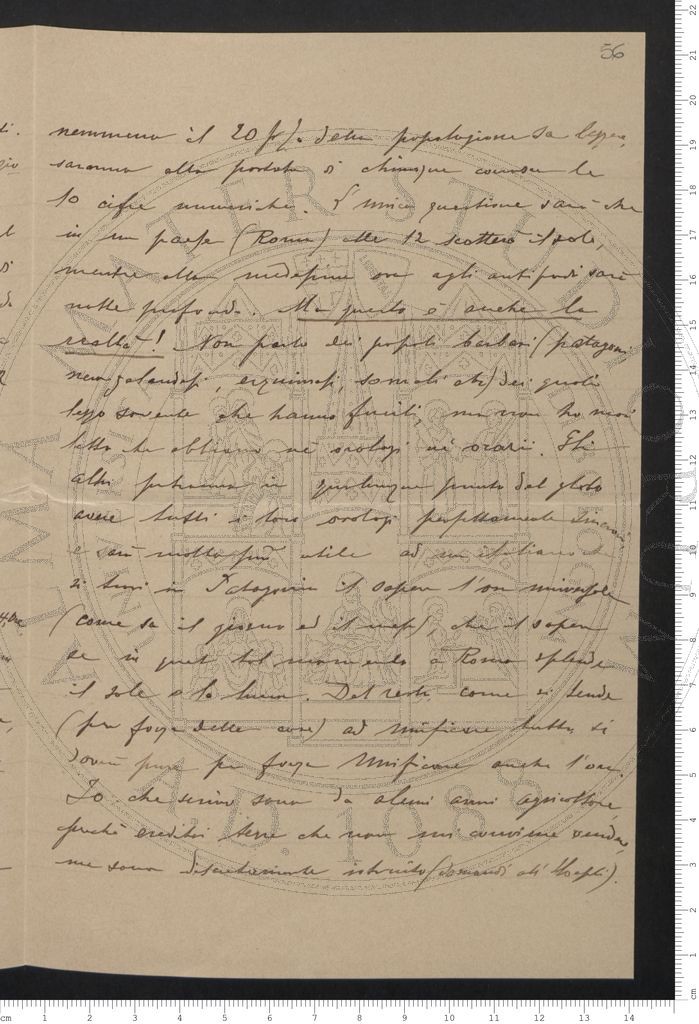 56
nemmeno il 20 p%. della popolazione sa leggere,
saranno alla portata di chiunque conosce le
10 cifre numeriche. L'unica questione sarà che
in un paese (Roma) alle 12 scotterà il sole,
mentre alla medesima ora agli antipodi sarà
notte profonda. Ma questo è anche la
realtà! Non parlo dei popoli barbari (patagoni
neozelandesi, esquimesi, somali etc) dei quali
leggo sovente che hanno fucili, ma non ho mai
letto che abbiano nè orologi nè orari. Gli
altri potranno in qualunque punto del globo
avere tutti i loro orologi perfettamente
e sarà molto più utile ad un italiano che
si trovi in Patagonia il sapere l'ora universale
(come sa il giorno ed il mese), che il sapere
se in quel tal momento a Roma splende
il sole o la luna. Del resto, come si tende
(per forza delle cose) ad unificare tutto, si
dovrà pure per forza unificare anche l'ora.
Io che scrivo sono da alcuni anni agricoltore
perchè ereditai terre che non mi conviene vendere
ma sono discretamente istruito (domandi all' Hoepli).